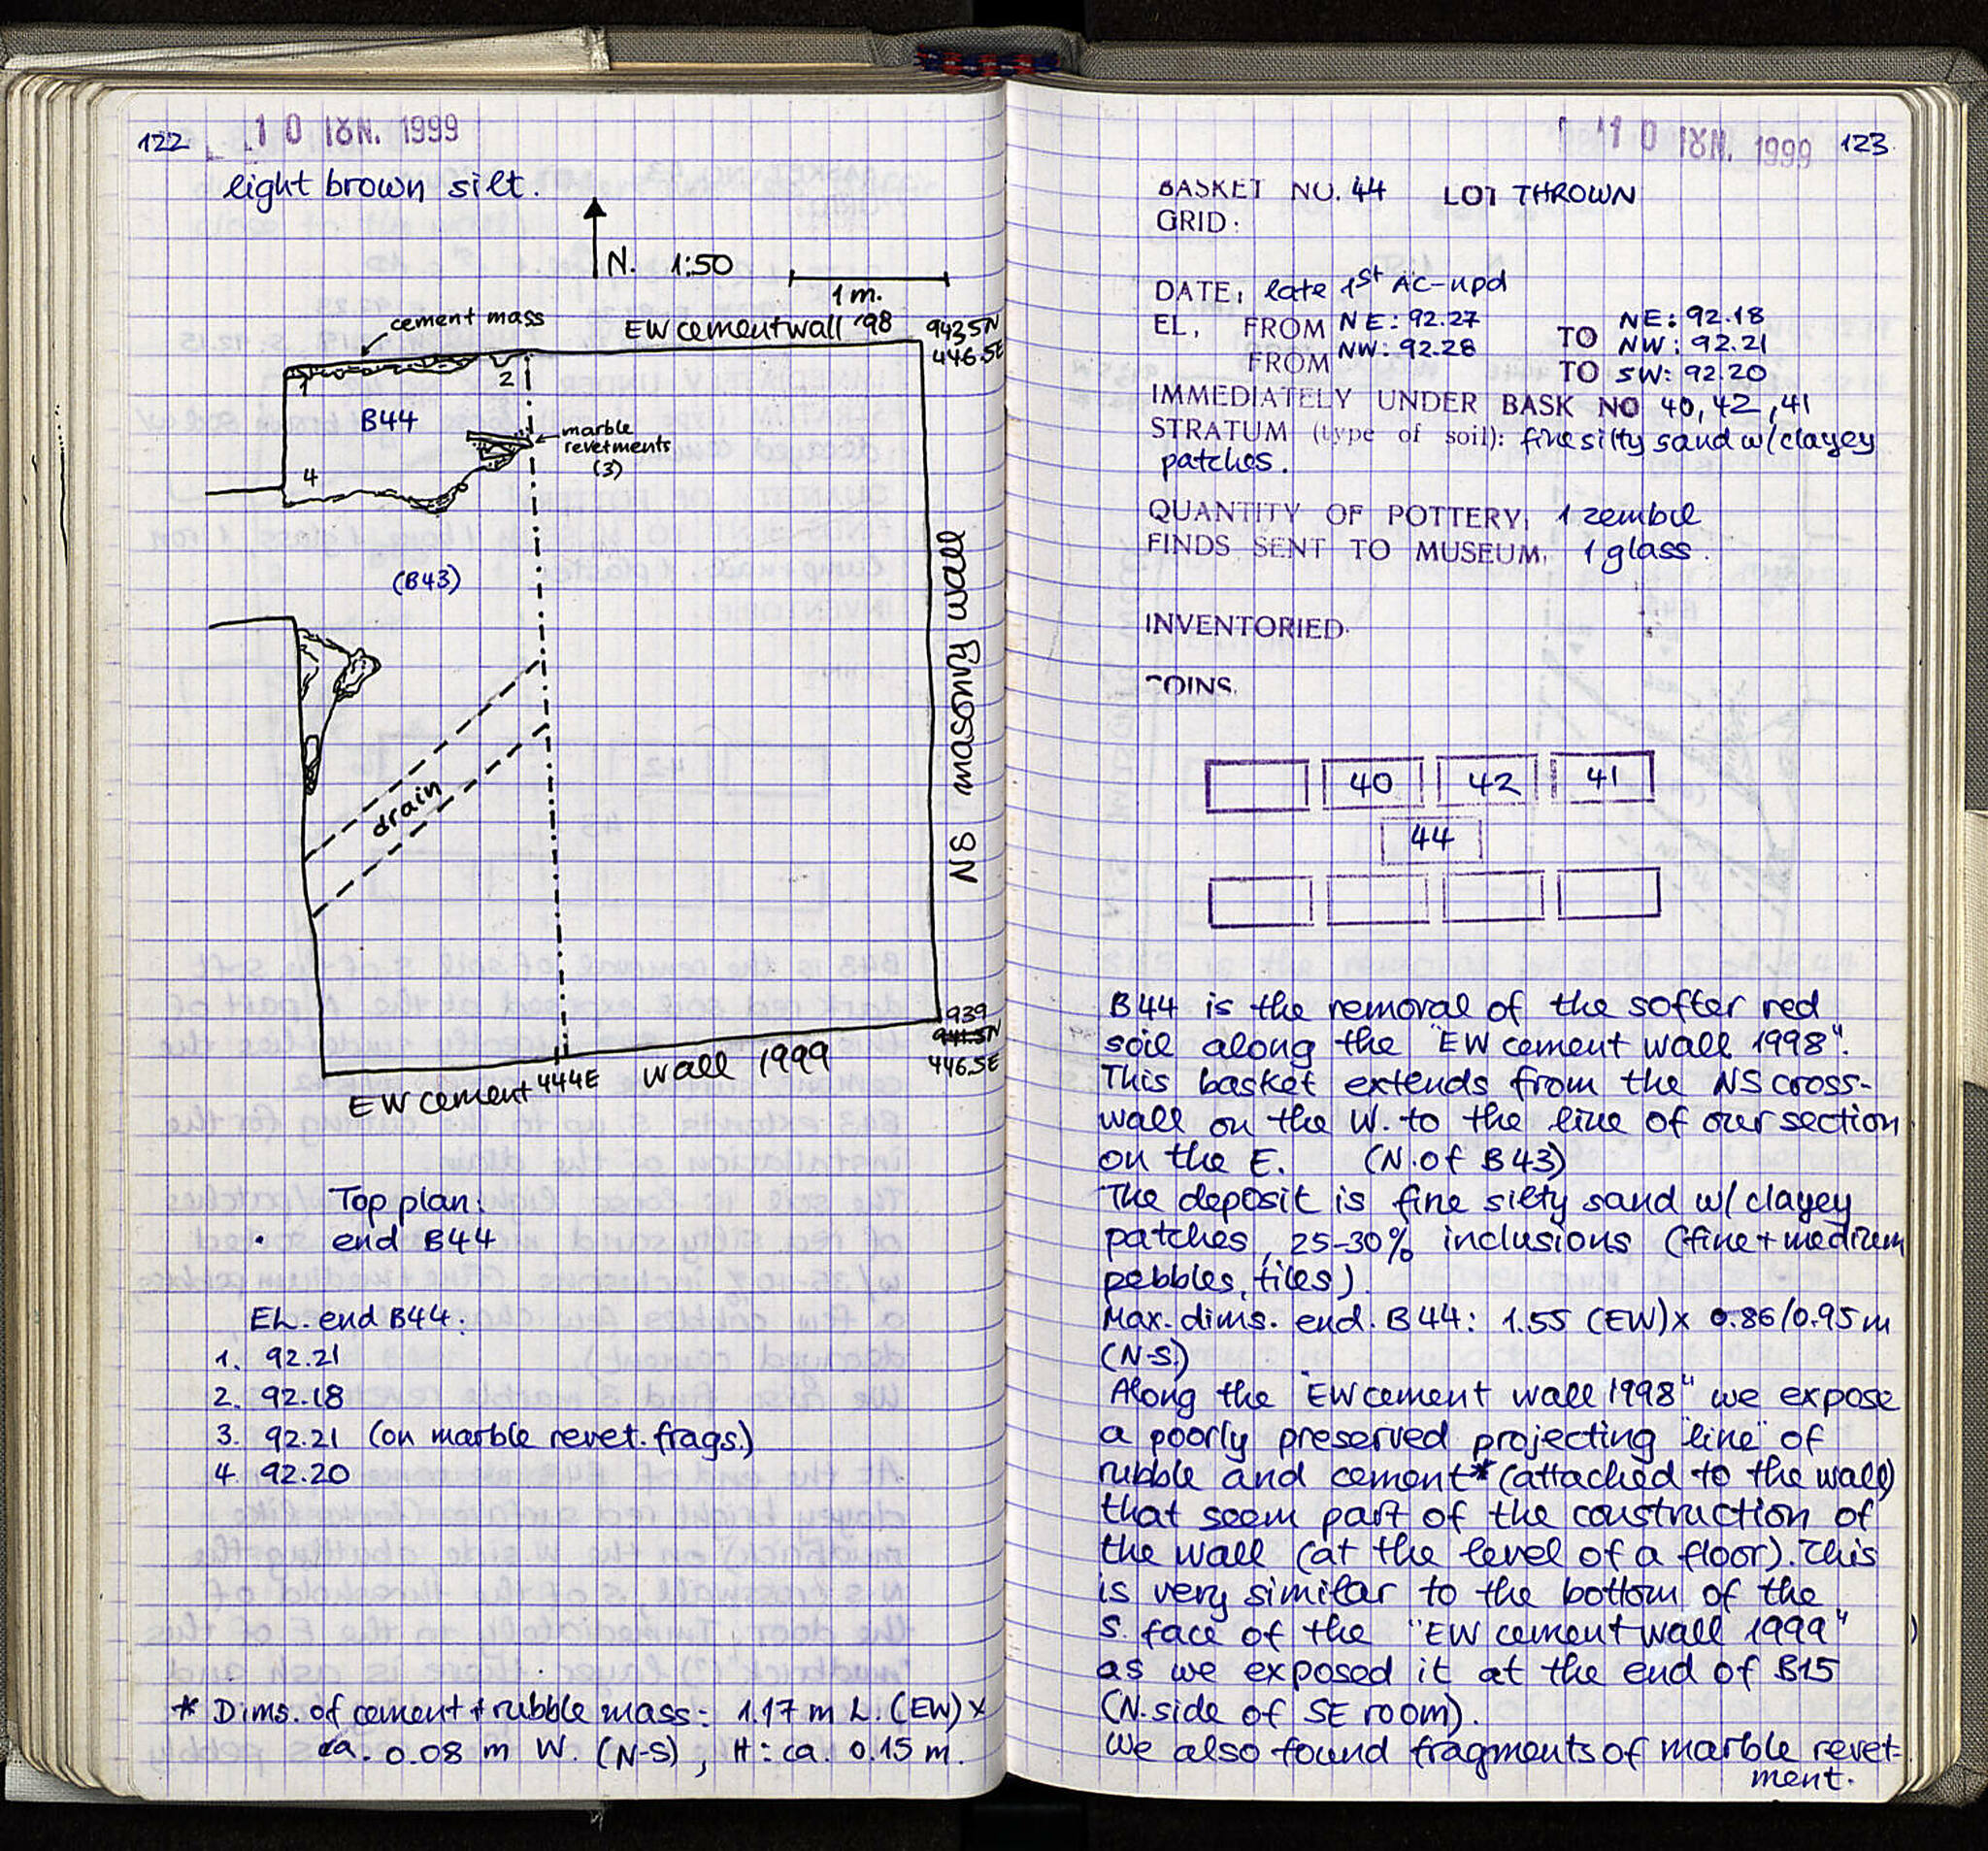 122
10 ΙȣΝ. 1999
light brown silt.
N. 1:50
1 m.
cement mass
EW cement wall '98
943.5N
446.5E
1
2
B44
marble
revetments
(3)
4
(B43)
NS masonry wall
drain
939
941.5N
446.5E
EW cement 444E wall 1999
Top plan:
end B44
EL. end B44:
1. 92.21
2. 92.18
3. 92.21 (on marble revet. frags.)
4. 92.20
* Dims. of cement + rubble mass: 1.17 m L. (EW) x
ca. 0.08 m W. (N-S), H: ca. 0.15 m.
10 ΙȣΝ. 1999
123
BASKET NO. 44 LOT THROWN
GRID:
DATE: late 1st AC-npd
EL, FROM NE: 92.27 TO NE: 92.18
NW: 92.28 NW: 92.21
FROM TO SW: 92.20
IMMEDIATELY UNDER BASK NO 40, 42, 41
STRATUM (type of soil): fine silty sand w/ clayey
patches.
QUANTITY OF POTTERY: 1 zembil
FINDS SENT TO MUSEUM, 1 glass.
INVENTORIED.
COINS.
40 42 41
44
B44 is the removal of the softer red
soil along the "EW cement wall 1998".
This basket extends from the NS cross-
wall on the W. to the line of our section
on the E. (N. of B43)
The deposit is fine silty sand w/ clayey
patches, 25-30% inclusions (fine + medium
pebbles, tiles).
Max. dims. end. B44: 1.55 (EW) x 0.86/0.95 m
(N-S)
Along the "EW cement wall 1998" we expose
a poorly preserved projecting "line" of
rubble and cement* (attached to the wall)
that seem part of the construction of
the wall (at the level of a floor). This
is very similar to the bottom of the
S. face of the "EW cement wall 1999"
as we exposed it at the end of B15
(N. side of SE room).
We also found fragments of marble revet-
ment.